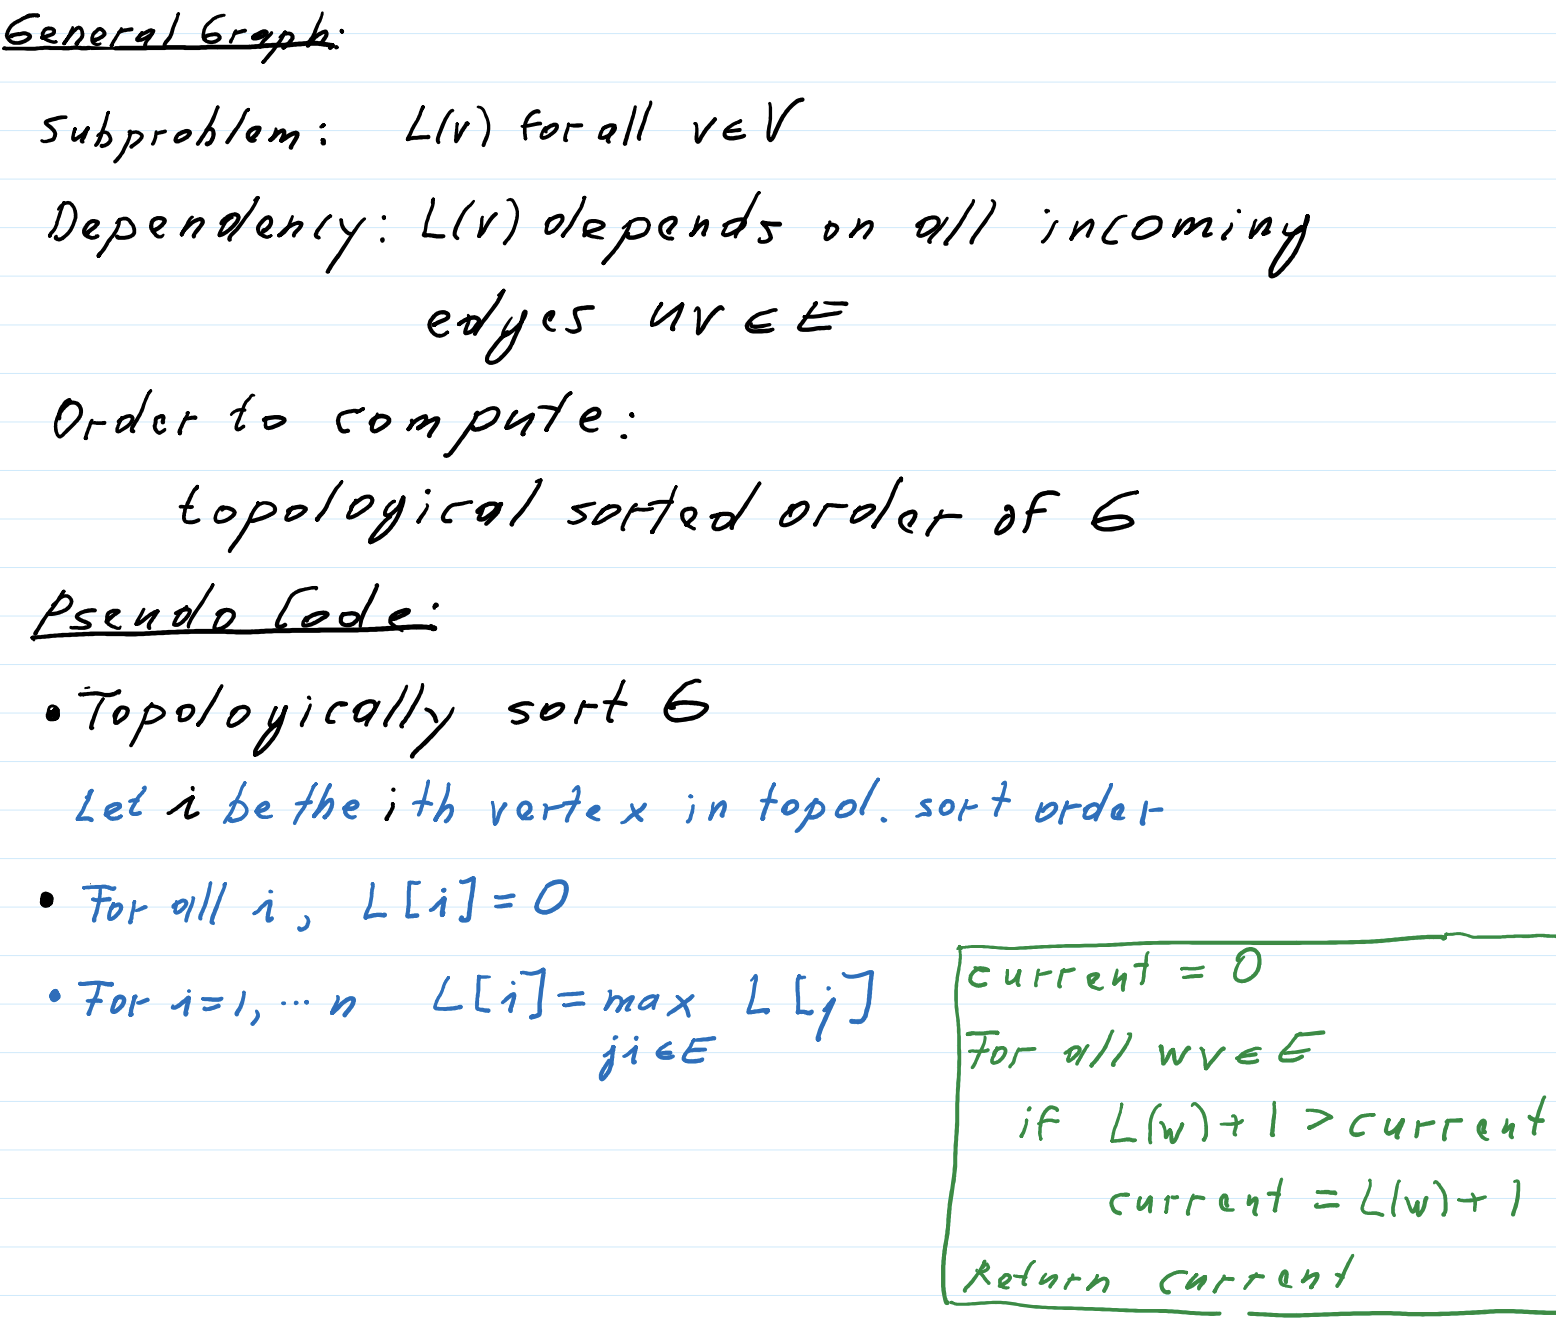 General Graph:
Subproblem: L(v) for all v ∈ V
Dependency: L(v) depends on all incoming
edges uv ∈ E
Order to compute:
topological sorted order of G
Pseudo Code:
• Topologically sort G
Let i be the ith vertex in topol. sort order
• For all i, L[i] = 0
• For i=1, ... n L[i] = max L[j]
ji ∈ E
current = 0
For all wv ∈ E
if L(w) + 1 > current
current = L(w) + 1
Return current